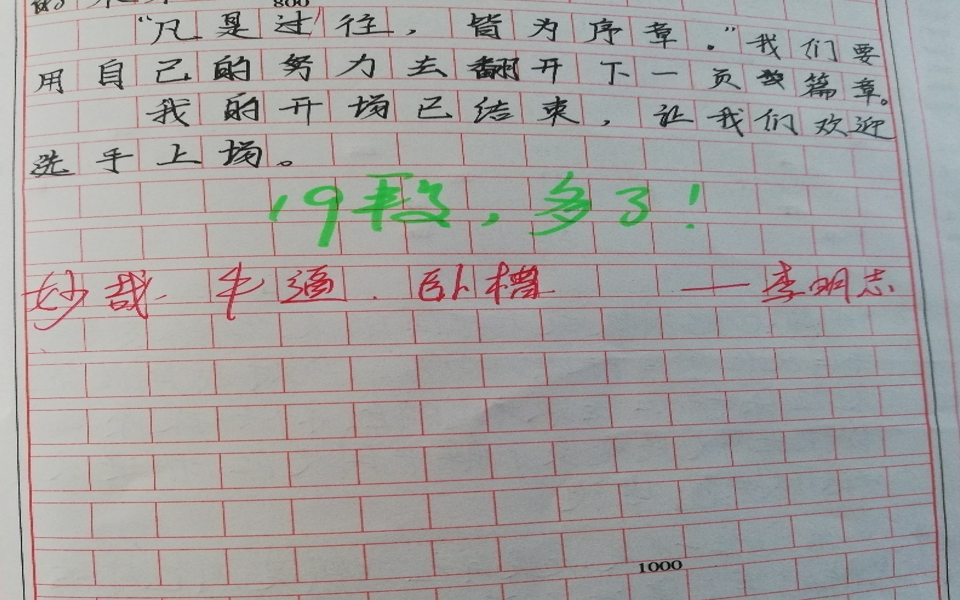 800
“凡是过往，皆为序章。”我们要
用自己的努力去翻开下一页篇章。
我的开场已结束，让我们欢迎
选手上场。
19段，多了！
妙哉. 牛逼. 卧槽 ——李明志
1000